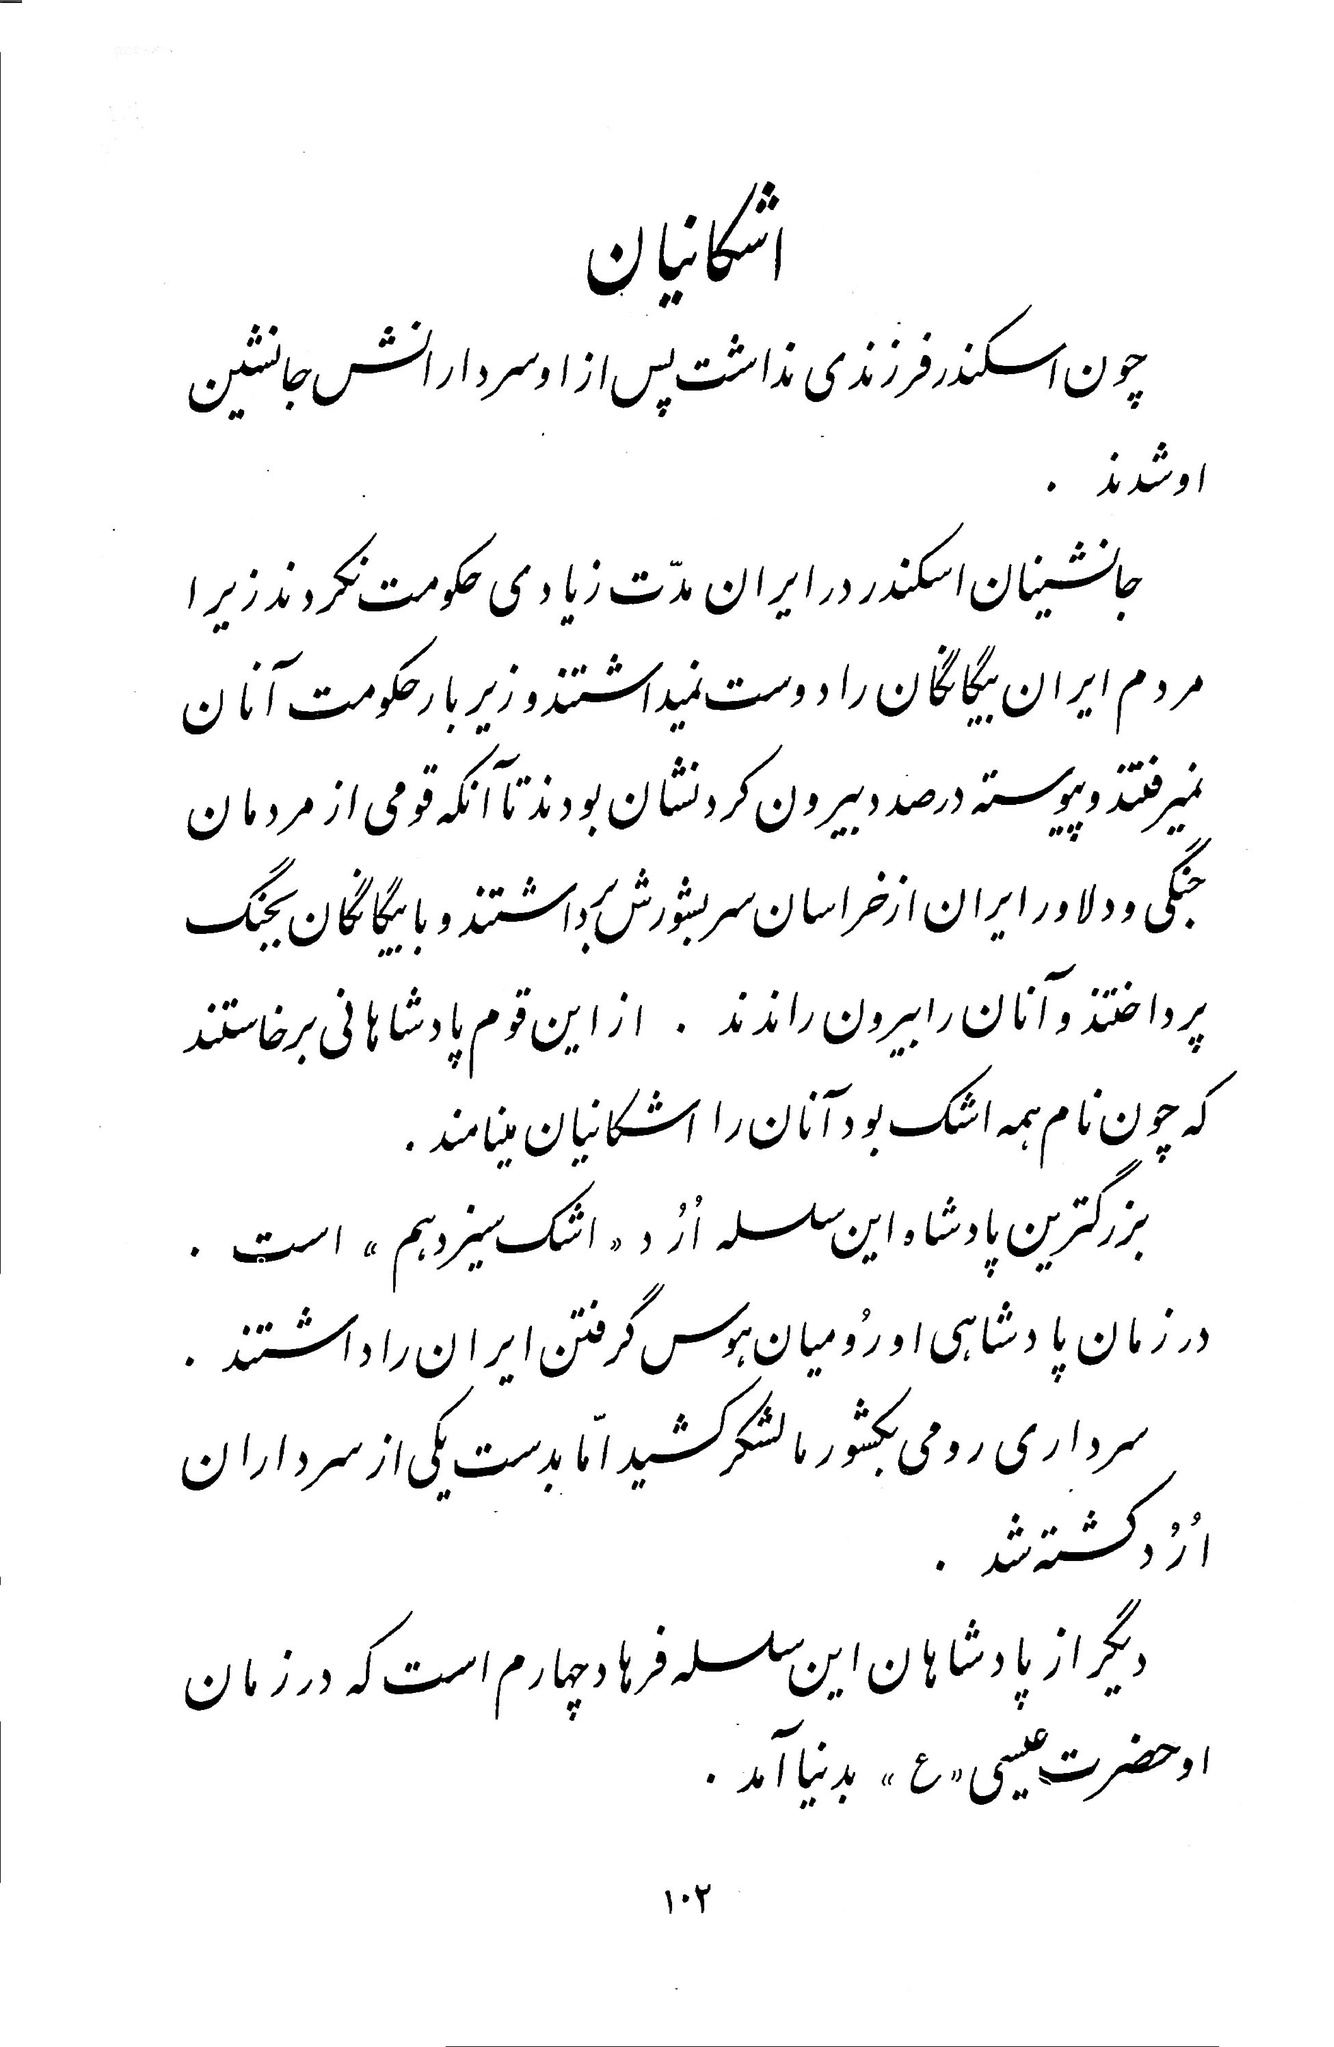 اشکانیان
چون اسکندر فرزندی نداشت پس از او سردارانش جانشین
او شدند .
جانشینان اسکندر در ایران مدّت زیادی حکومت نکردند زیرا
مردم ایران بیگانگان را دوست نمیداشتند و زیر بار حکومت آنان
نمیرفتند و پیوسته درصدد بیرون کردنشان بودند تا آنکه قومی از مردمان
جنگی و دلاور ایران از خراسان سر بشورش برداشتند و با بیگانگان بجنگ
پرداختند و آنان را بیرون راندند . از این قوم پادشاهانی برخاستند
که چون نام همه اشک بود آنان را اشکانیان مینامند .
بزرگترین پادشاه این سلسله اُرُد « اشک سیزدهم » است .
در زمان پادشاهی او رُومیان هوس گرفتن ایران را داشتند .
سرداری رومی بکشور ما لشکر کشید امّا بدست یکی از سرداران
اُرُد کشته شد .
دیگر از پادشاهان این سلسله فرهاد چهارم است که در زمان
او حضرت عیسی « ع » بدنیا آمد .
۱۰۲